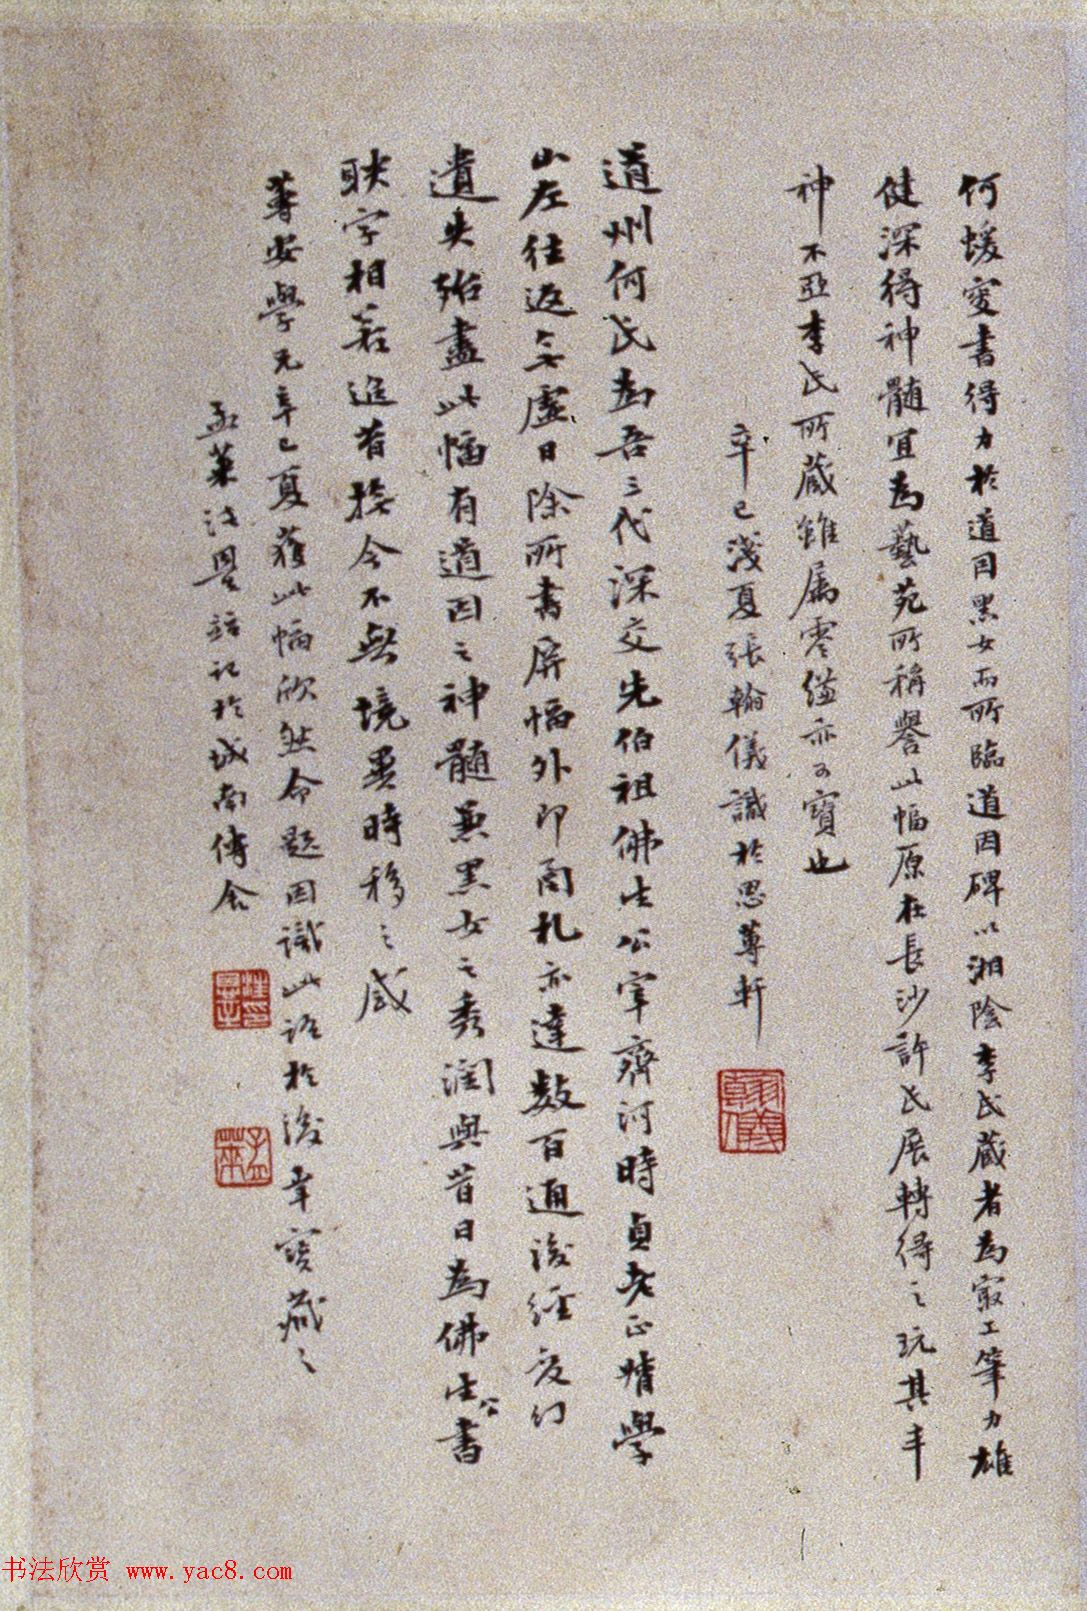 何蝯叟書得力於道因黑女而所臨道因碑以湘陰李氏藏者為最工筆力雄
健深得神髓宜為藝苑所稱譽此幅原在長沙許氏展轉得之玩其丰
神不亞李氏所藏雖属零縑亦可寶也
辛巳淺夏張翰儀識於思蓴軒
翰儀
道州何氏為吾三代深交先伯祖佛生公宰齊河時貞老正情學
山左往返無虛日除所書屏幅外即函札亦達數百通後經变幻
遺失殆盡此幅有道因之神髓兼黑女之秀潤與昔日為佛生公書
聯字相若追昔撫今不無境異時移之感
蓴安學兄辛巳夏獲此幅欣然命題因識此語於後幸寶藏之
孟萊汪 記於城南傳舍
孟萊
书法欣赏 www.yac8.com